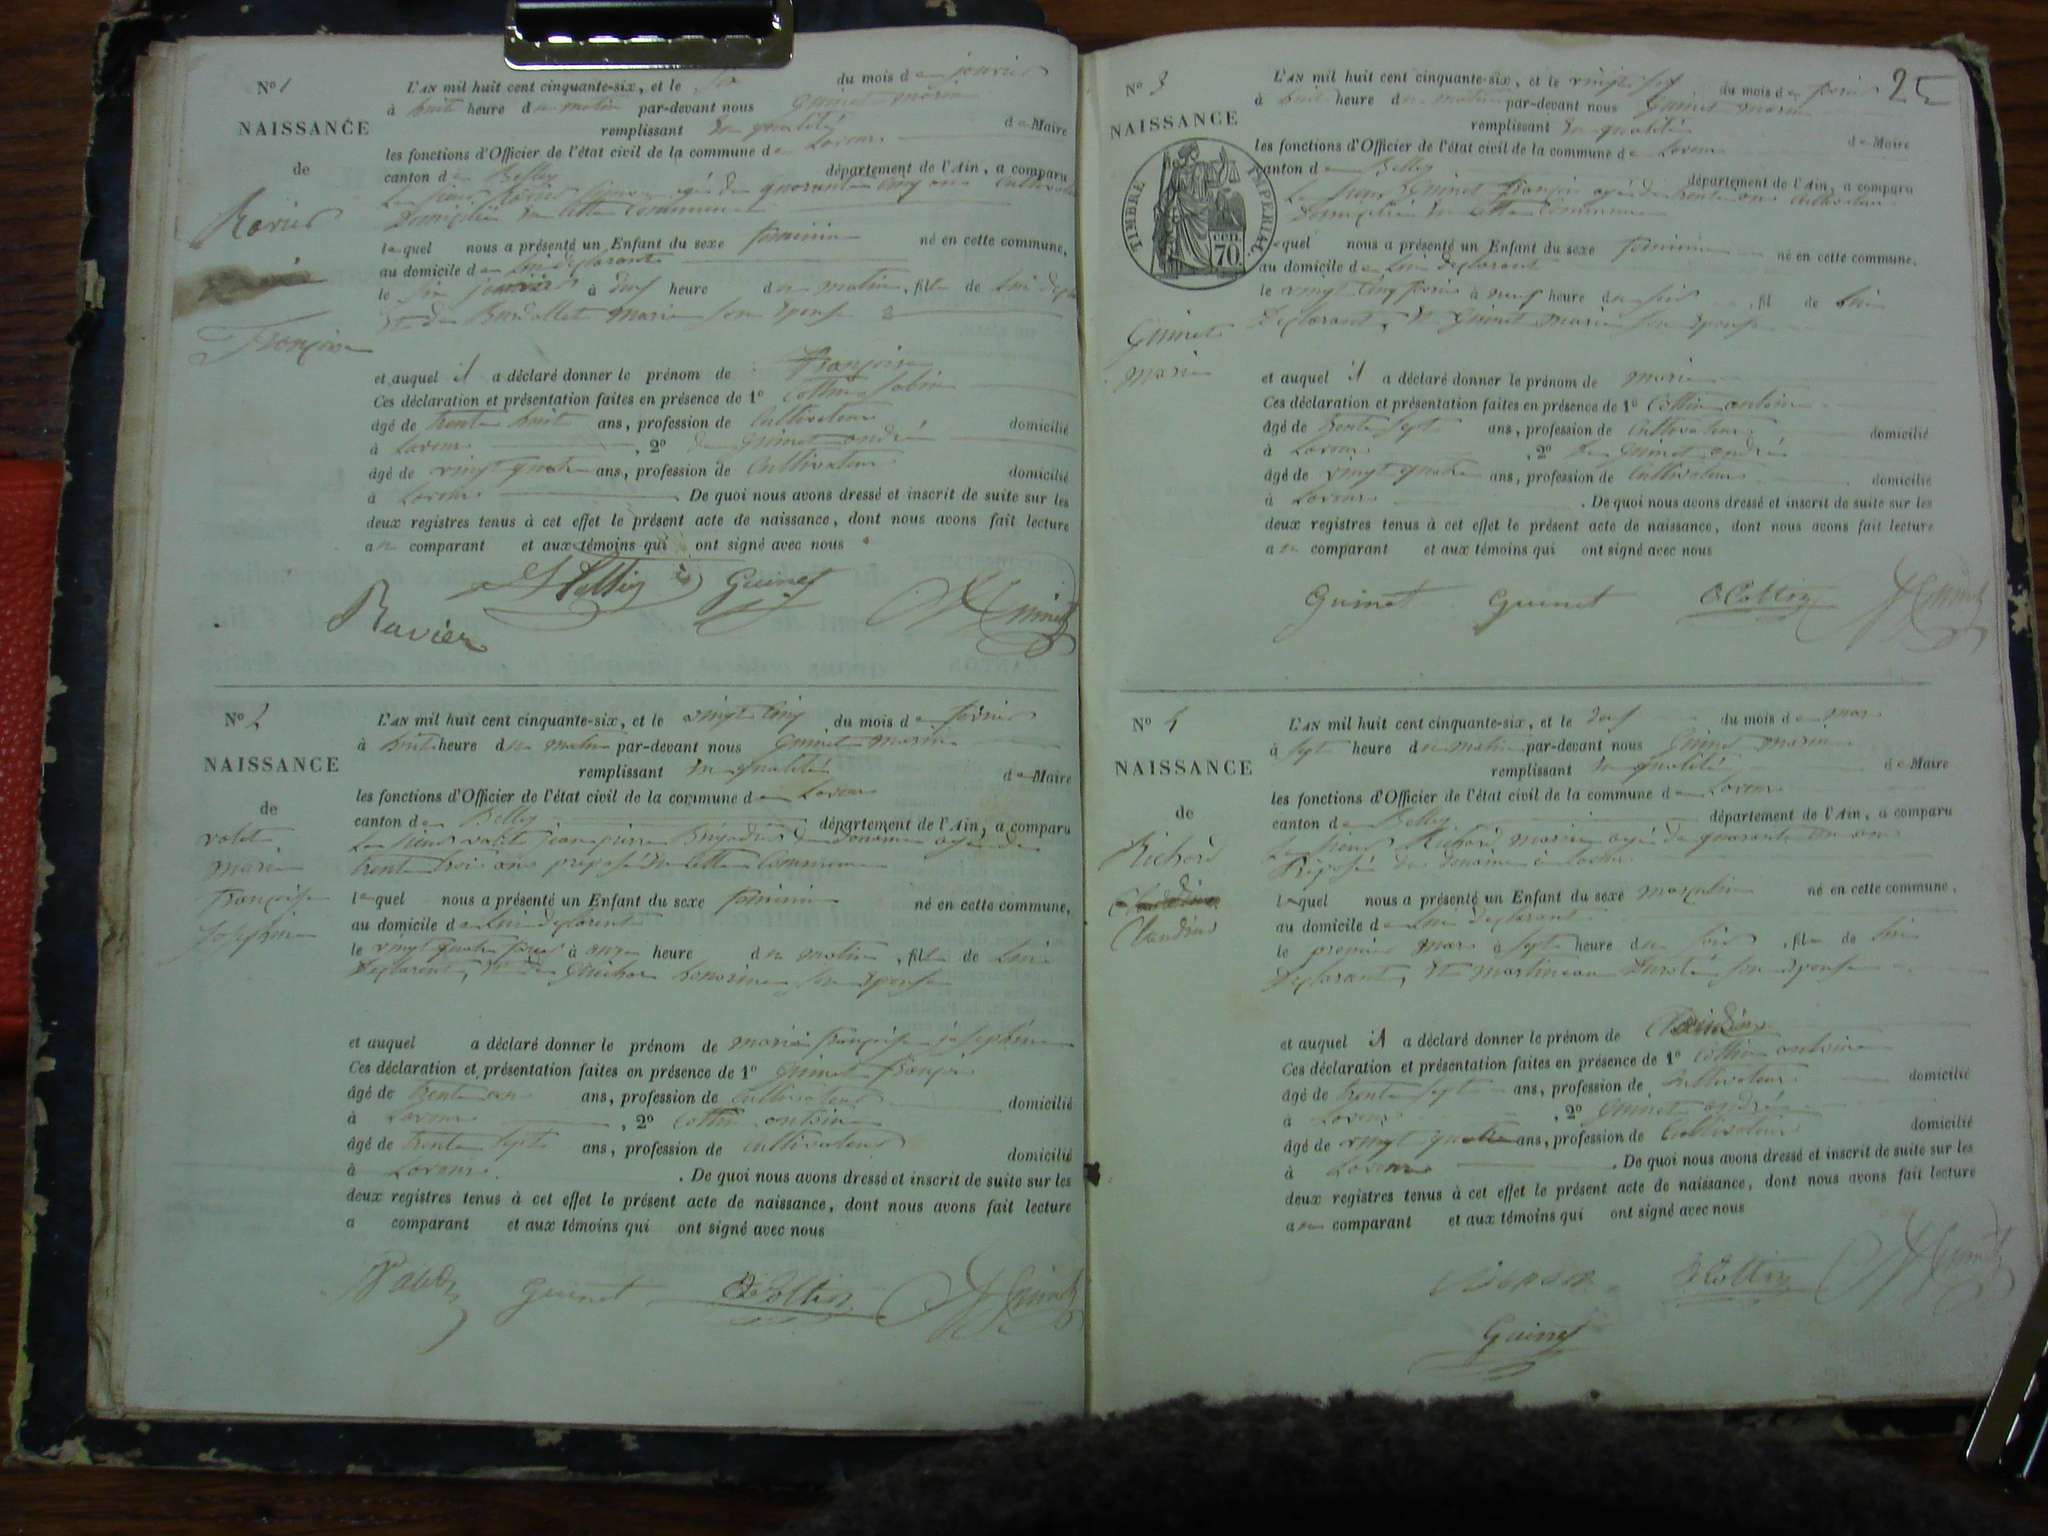 N° 1
NAISSANCE
de
Ravier
Françoise
L'AN mil huit cent cinquante-six, et le six du mois de janvier
à huit heure du matin par-devant nous Guinet marin
remplissant en qualité de Maire
les fonctions d'Officier de l'état civil de la commune de Lavours
canton de Belley département de l'Ain, a comparu
Le sieur Ravier âgé de quarante cinq ans Cultivateur
Domicilié en cette commune
lequel nous a présenté un Enfant du sexe féminin né en cette commune,
au domicile de lui déclarant
le six janvier à heure du matin, fille de lui
et de marie son épouse
et auquel il a déclaré donner le prénom de Françoise
Ces déclaration et présentation faites en présence de 1° Cottin
âgé de trente huit ans, profession de Cultivateur domicilié
à Lavours, 2° de Guinet andré
âgé de vingt quatre ans, profession de Cultivateur domicilié
à Lavours. De quoi nous avons dressé et inscrit de suite sur les
deux registres tenus à cet effet le présent acte de naissance, dont nous avons fait lecture
au comparant et aux témoins qui ont signé avec nous
Guinet
Ravier
N° 2
NAISSANCE
de
marie
françoise
Josephine
L'AN mil huit cent cinquante-six, et le vingt cinq du mois de février
à huit heure du matin par-devant nous Guinet marin
remplissant en qualité de Maire
les fonctions d'Officier de l'état civil de la commune de Lavours
canton de Belley département de l'Ain, a comparu
Le sieur jean pierre Brigadier de douanes âgé de
trente trois ans préposé en cette commune
lequel nous a présenté un Enfant du sexe féminin né en cette commune,
au domicile de lui déclarant
le vingt quatre à onze heure du matin, fille de lui
Déclarant, et de honorine son épouse
et auquel a déclaré donner le prénom de marie françoise josephine
Ces déclaration et présentation faites en présence de 1° Guinet françois
âgé de trente un ans, profession de Cultivateur domicilié
à Lavours, 2° Cottin antoine
âgé de trente sept ans, profession de cultivateur domicilié
à Lavours. De quoi nous avons dressé et inscrit de suite sur les
deux registres tenus à cet effet le présent acte de naissance, dont nous avons fait lecture
a comparant et aux témoins qui ont signé avec nous
Guinet Cottin Guinet
25
N° 3
NAISSANCE
TIMBRE IMPÉRIAL
cen.
70.
Guinet
marie
L'AN mil huit cent cinquante-six, et le vingt sept du mois de février
à huit heure du matin par-devant nous Guinet marin
remplissant en qualité de Maire
les fonctions d'Officier de l'état civil de la commune de Lavours
canton de Belley département de l'Ain, a comparu
Le sieur Guinet françois âgé de trente ans Cultivateur
Domicilié en cette commune
lequel nous a présenté un Enfant du sexe féminin né en cette commune,
au domicile de lui déclarant
le vingt cinq à neuf heure du soir, fil de lui
Déclarant, et Guinet marie son épouse
et auquel il a déclaré donner le prénom de marie
Ces déclaration et présentation faites en présence de 1° Cottin antoine
âgé de trente sept ans, profession de Cultivateur domicilié
à Lavours, 2° de Guinet andré
âgé de vingt quatre ans, profession de Cultivateur domicilié
à Lavours. De quoi nous avons dressé et inscrit de suite sur les
deux registres tenus à cet effet le présent acte de naissance, dont nous avons fait lecture
au comparant et aux témoins qui ont signé avec nous
Guinet Guinet Cottin Guinet
N°
NAISSANCE
de
Richard
Claudius
L'AN mil huit cent cinquante-six, et le du mois de mars
à sept heure du matin par-devant nous Guinet marin
remplissant en qualité de Maire
les fonctions d'Officier de l'état civil de la commune de Lavours
canton de Belley département de l'Ain, a comparu
Le sieur Richard âgé de quarante un ans
Préposé des douanes à Lavours
lequel nous a présenté un Enfant du sexe masculin né en cette commune,
au domicile de lui déclarant
le premier mars à sept heure du soir, fils de lui
Déclarant, et son épouse
et auquel il a déclaré donner le prénom de
Ces déclaration et présentation faites en présence de 1° Cottin antoine
âgé de trente sept ans, profession de Cultivateur domicilié
à Lavours, 2° Guinet andré
âgé de vingt quatre ans, profession de Cultivateur domicilié
à Lavours. De quoi nous avons dressé et inscrit de suite sur les
deux registres tenus à cet effet le présent acte de naissance, dont nous avons fait lecture
au comparant et aux témoins qui ont signé avec nous
Cottin Guinet
Guinet